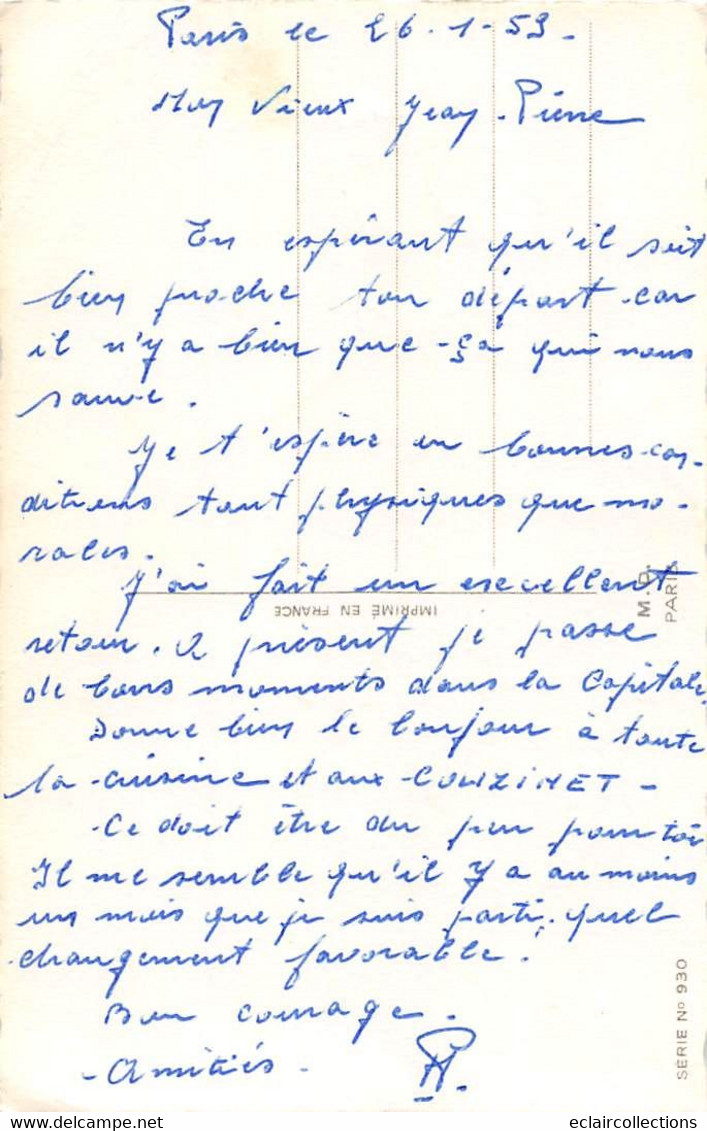 Paris le 26-1-59-
Mon vieux Jean-Pierre
En espérant qu'il soit
bien proche ton départ car
il n'y a bien que -ça qui nous
sauve.
Je t'espère en bonnes con-
ditions tant physiques que mo-
rales.
J'ai fait un excellent
M.D.
PARIS
IMPRIMÉ EN FRANCE
retour. A présent je passe
de bons moments dans la Capitale.
Donne bien le bonjour à toute
la cuisine et aux -COUZINET-
-Ce doit être du peu pour toi
Il me semble qu'il y a au moins
un mois que je suis parti, quel
changement favorable!
Bon courage.
-Amitiés.
SERIE No 930
eclaircollections